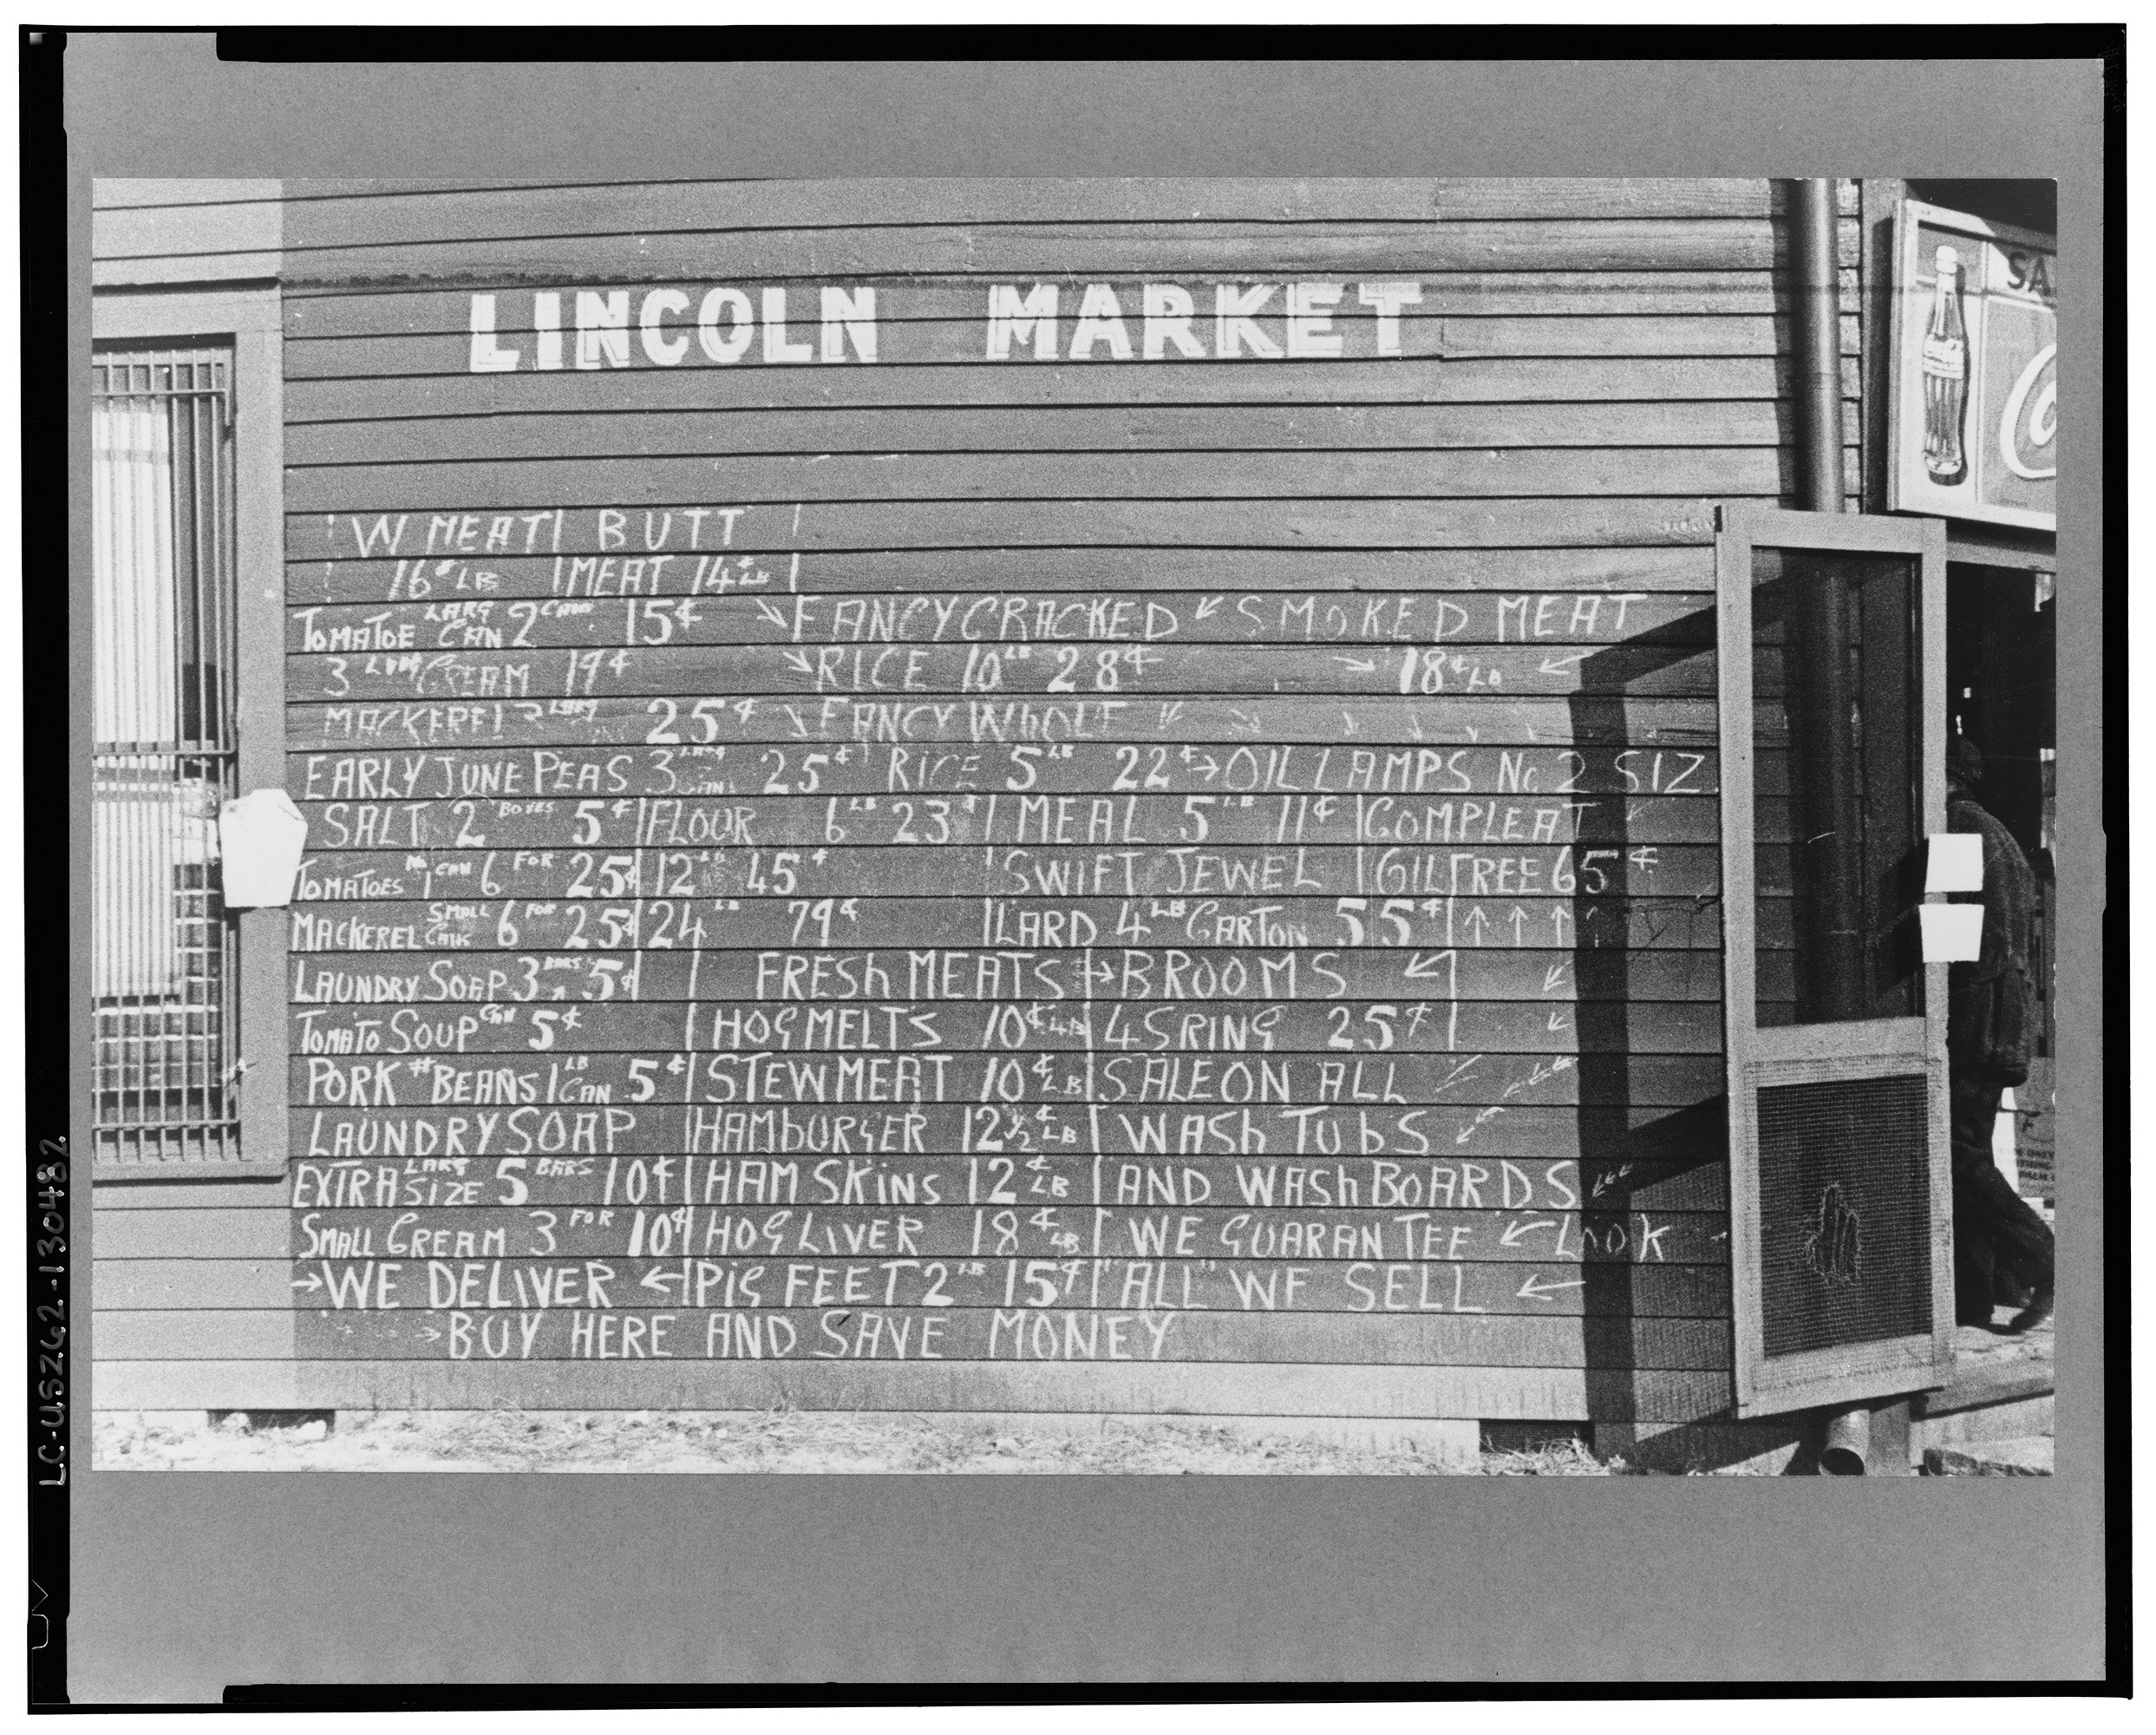 LINCOLN MARKET
W MEAT BUTT
16¢ LB MEAT 14¢ LB
TOMATOE LARG CAN 2 CANS 15¢ FANCY CRACKED SMOKED MEAT
3 LARG CREAM 19¢ RICE 10 LB 28¢ 18¢ LB
MACKEREL 2 LARG 25¢ FANCY WHOLE
EARLY JUNE PEAS 3 25¢ RICE 5 LB 22¢ → OIL LAMPS No 2 SIZ
SALT 2 BOXES 5¢ FLOUR 6 LB 23¢ MEAL 5 LB 11¢ COMPLEAT
TOMATOES No 1 CAN 6 FOR 25¢ 12 LB 45¢ SWIFT JEWEL OIL FREE 65¢
MACKEREL SMALL 6 FOR 25¢ 24 LB 79¢ LARD 4 LB CARTON 55¢ ↑ ↑ ↑ ↑
LAUNDRY SOAP 3 BARS 5¢ FRESH MEATS → BROOMS ↙
TOMATO SOUP CAN 5¢ HOG MELTS 10¢ LB 4 SRING 25¢
PORK # BEANS 1 LB CAN 5¢ STEW MEAT 10¢ LB SALE ON ALL
LAUNDRY SOAP HAMBURGER 12 1/2¢ LB WASH TUBS
EXTRA LARG SIZE 5 BARS 10¢ HAM SKINS 12¢ LB AND WASH BOARDS
SMALL CREAM 3 FOR 10¢ HOG LIVER 18¢ LB WE GUARANTEE ← LOOK
→ WE DELIVER ← PIG FEET 2 LB 15¢ "ALL" WE SELL ←
→ BUY HERE AND SAVE MONEY
SA
LC-USZ62-130482